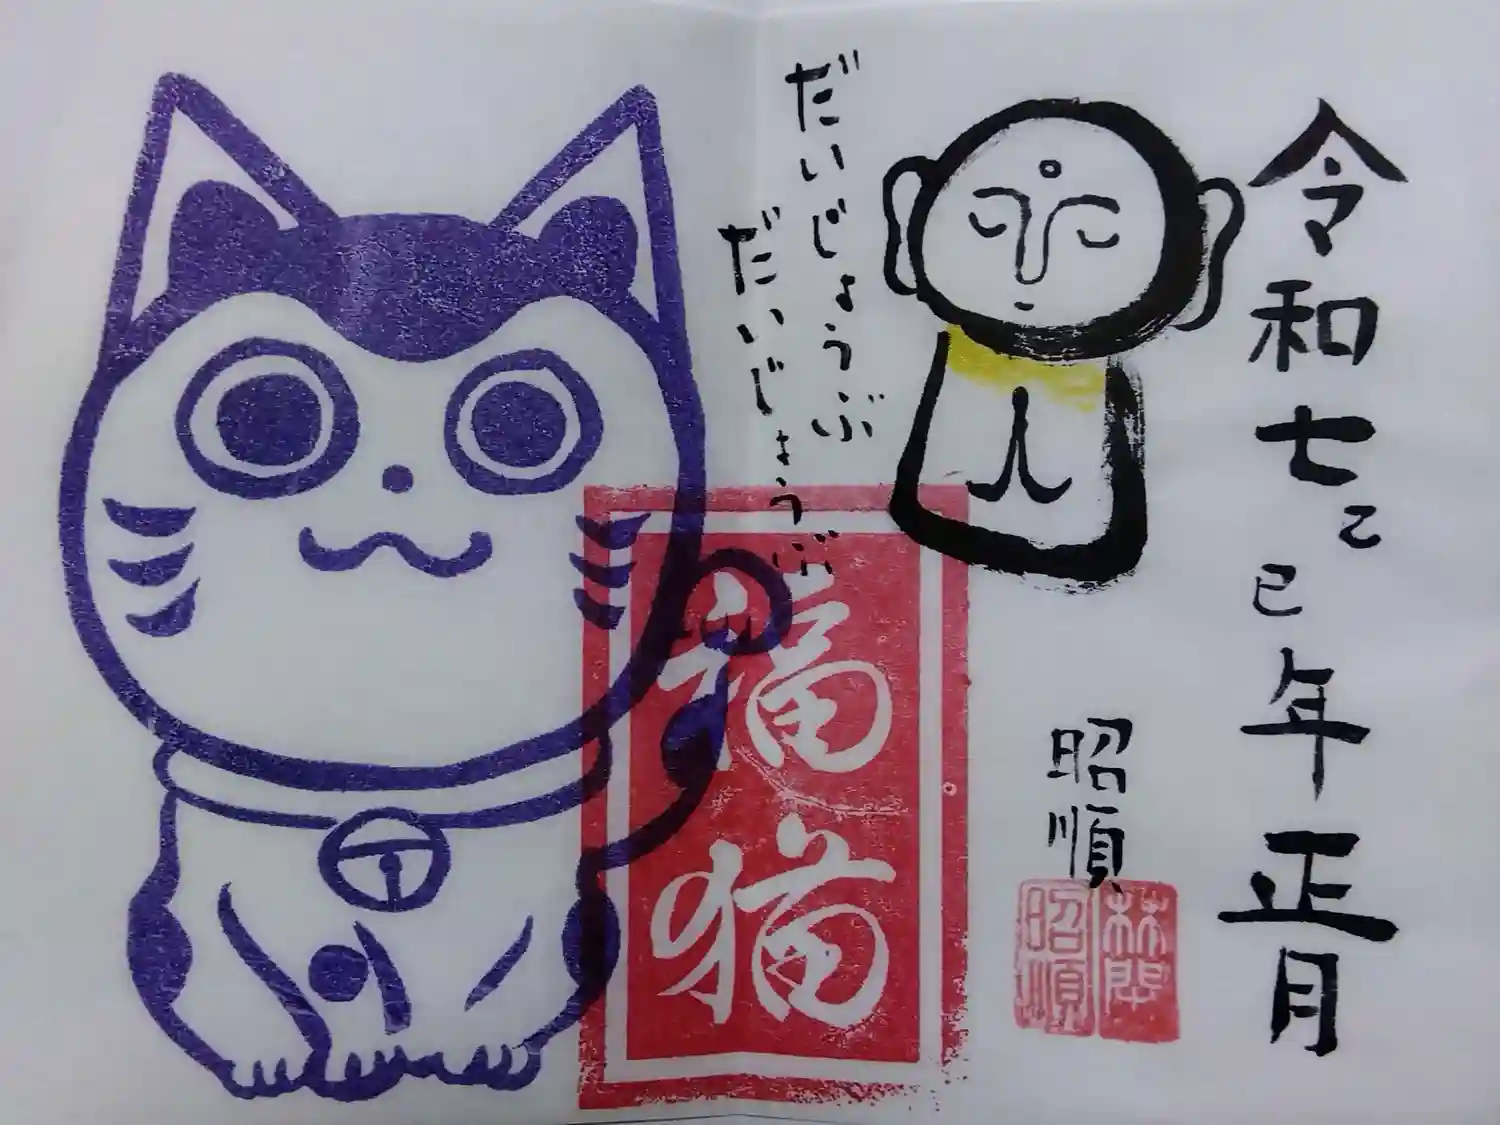 令和七乙巳年正月
昭順
林際
昭順
だいじょうぶ
だいじょうぶ
福猫